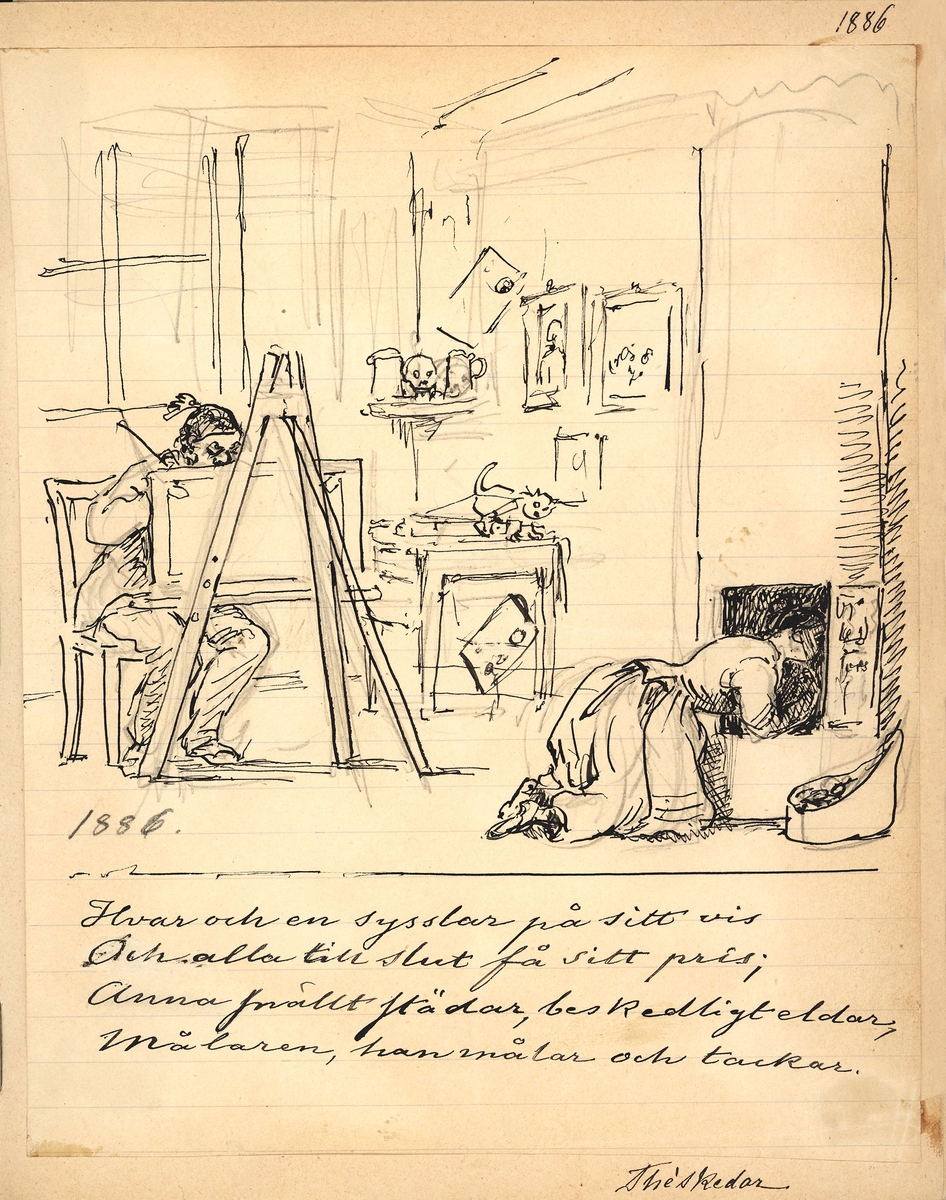 1886
1886.
Hvar och en sysslar på sitt vis
Och alla till slut få sitt pris;
Anna snällt städar, beskedligt eldar,
Målaren, han målar och tackar.
Théskedar